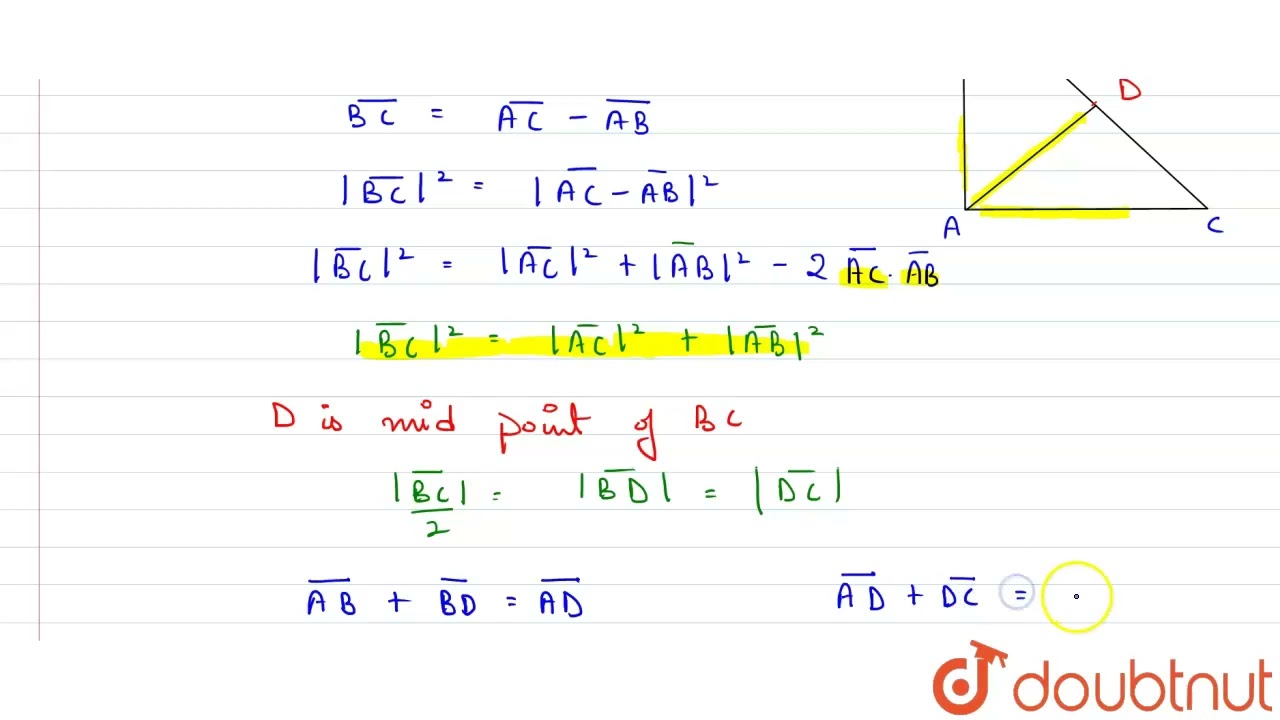 D
B̅C̅ = A̅C̅ – A̅B̅
|B̅C̅|² = |A̅C̅ – A̅B̅|²
A
C
|B̅C̅|² = |A̅C̅|² + |A̅B̅|² – 2 A̅C̅ . A̅B̅
|B̅C̅|² = |A̅C̅|² + |A̅B̅|²
D is mid point of BC
|B̅C̅|/2 = |B̅D̅| = |D̅C̅|
A̅B̅ + B̅D̅ = A̅D̅
A̅D̅ + D̅C̅ =
doubtnut